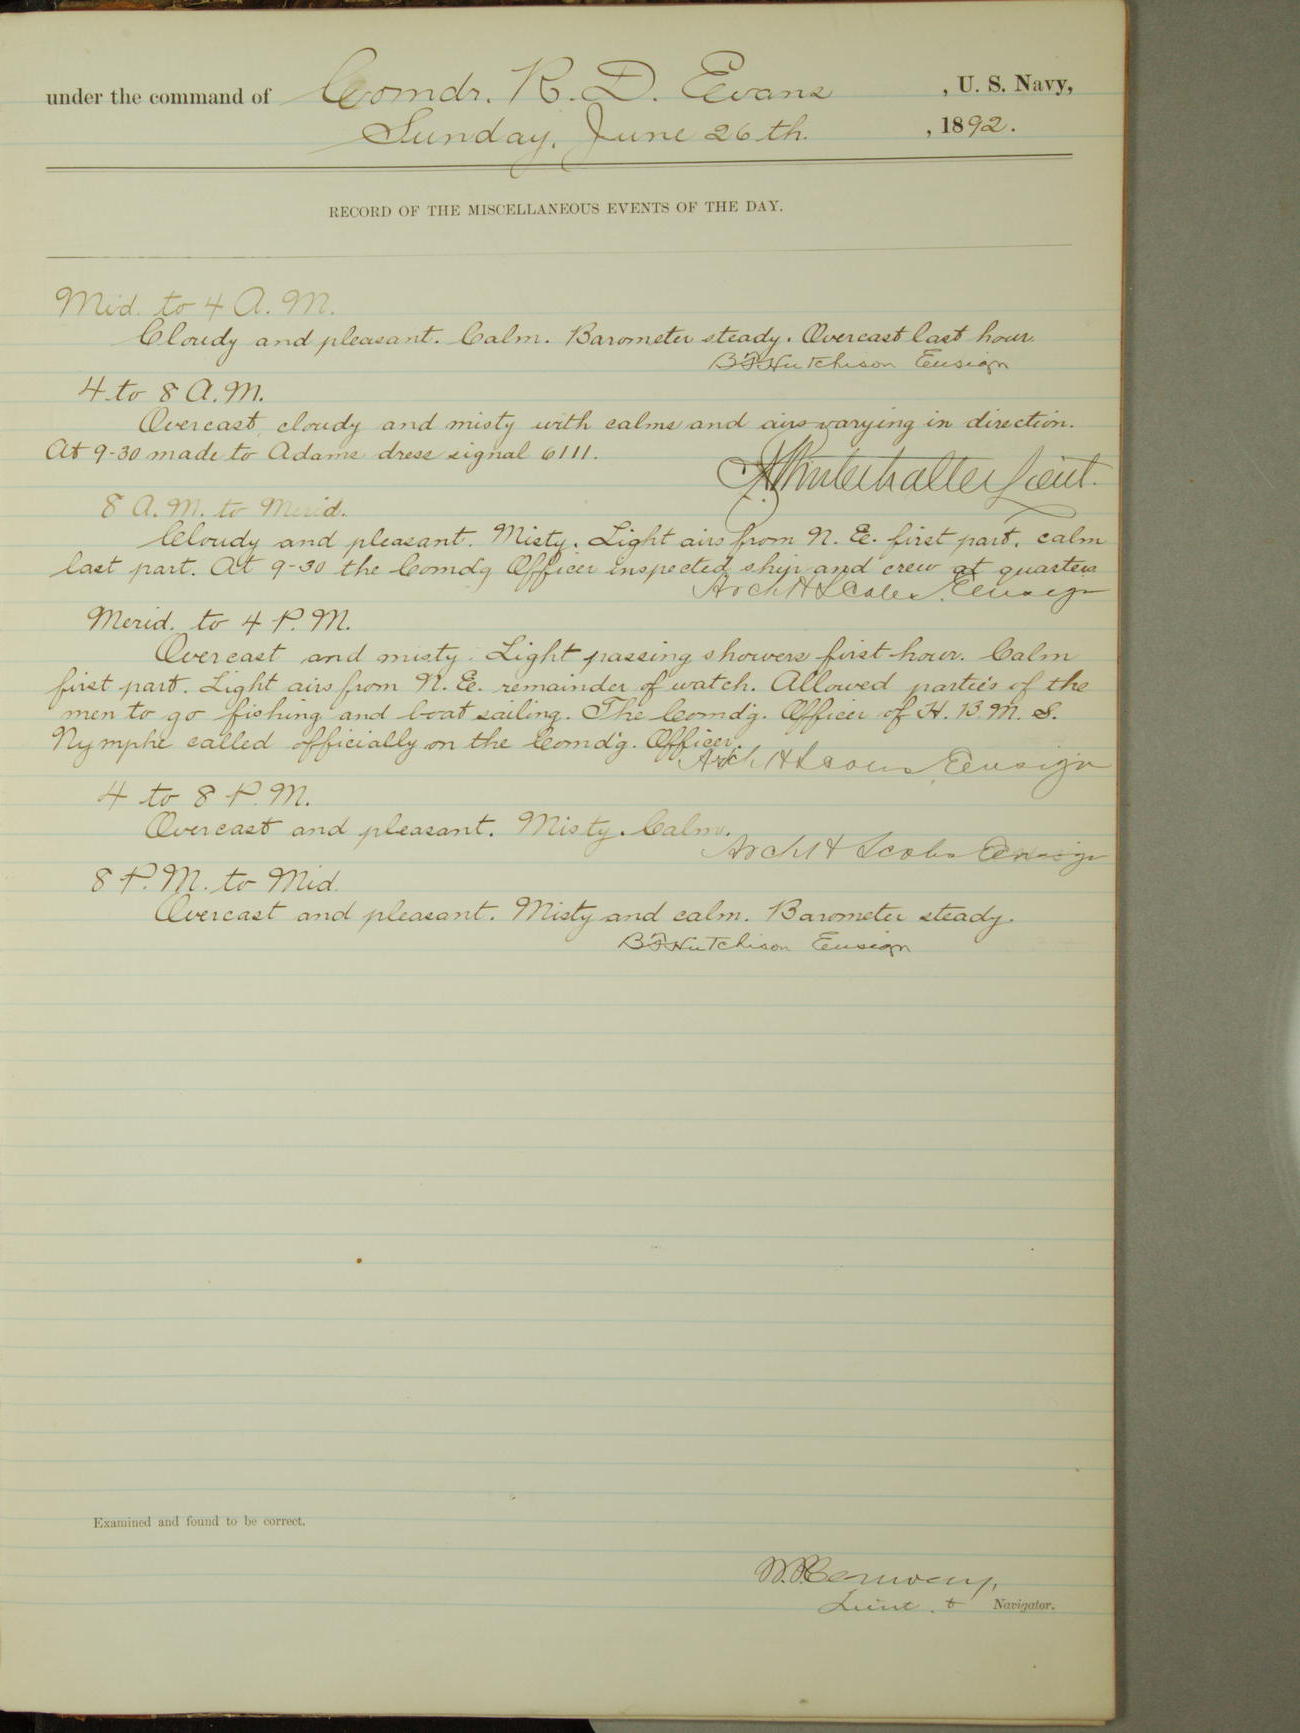 under the command of Comdr. R. D. Evans , U. S. Navy,
Sunday, June 26th. , 1892.
RECORD OF THE MISCELLANEOUS EVENTS OF THE DAY.
Mid. to 4 A. M.
Cloudy and pleasant. Calm. Barometer steady. Overcast last hour.
B F Hutchison Ensign
4 to 8 A. M.
Overcast, cloudy and misty with calms and airs varying in direction.
At 9-30 made to Adams dress signal 6111.
Lieut.
8 A. M. to Merid.
Cloudy and pleasant. Misty. Light airs from N. E. first part, calm
last part. At 9-30 the Comdg Officer inspected ship and crew at quarters
Arch H Scales Ensign
Merid. to 4 P. M.
Overcast and misty. Light passing showers first hour. Calm
first part. Light airs from N. E. remainder of watch. Allowed parties of the
men to go fishing and boat sailing. The Comd'g. Officer of H. B. M. S.
Nymphe called officially on the Comd'g. Officer.
Arch H Scales Ensign
4 to 8 P. M.
Overcast and pleasant. Misty. Calm.
Arch H Scales Ensign
8 P. M. to Mid.
Overcast and pleasant. Misty and calm. Barometer steady.
B F Hutchison Ensign
Examined and found to be correct.
Lieut. & Navigator.